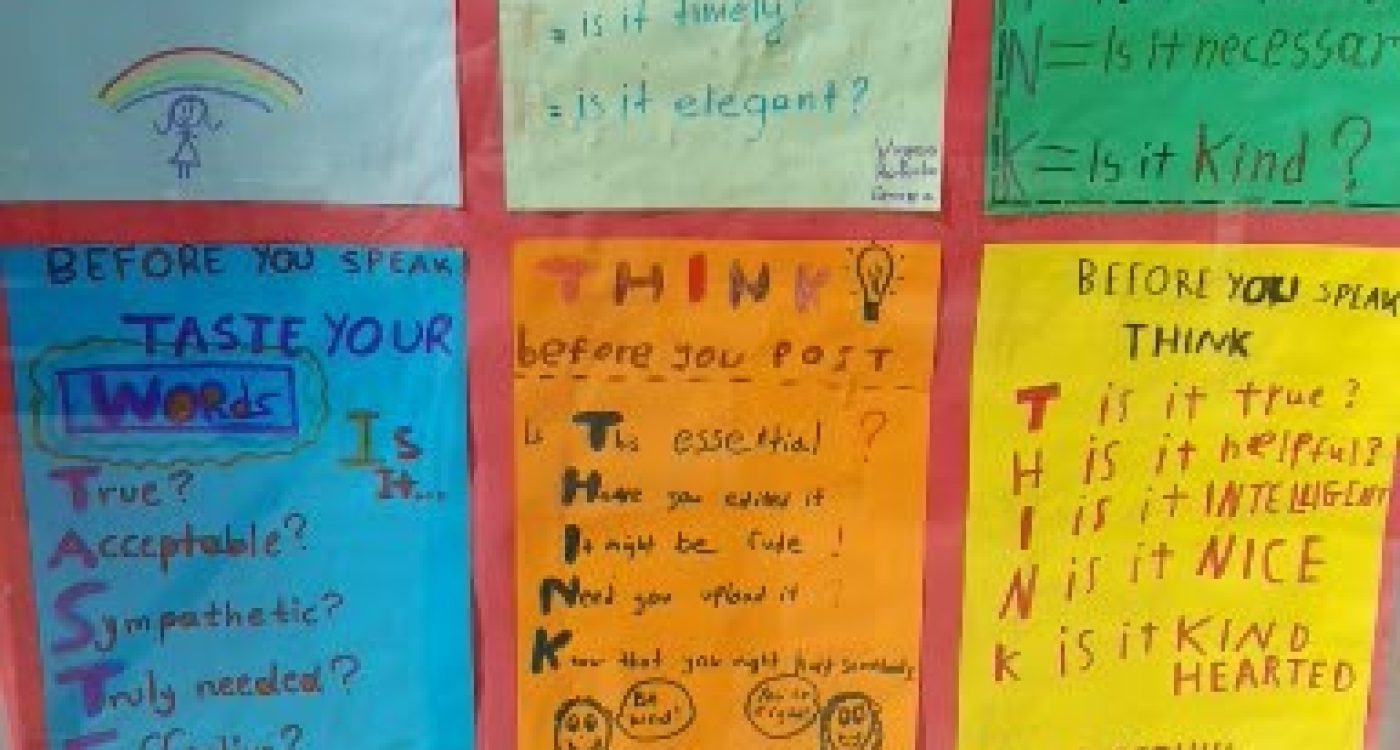 = is it timely?
= is it elegant?
N = Is it necessar
K = Is it Kind?
BEFORE YOU SPEAK
TASTE YOUR
WORds
Is
It...
True?
Acceptable?
Sympathetic?
Truly needed?
Effective?
THINK
before you POST
Is This essential ?
Have you edited it
It might be rude !
Need you upload it ?
Know that you might hurt somebody
Be kind!
BEFORE YOU SPEAK
THINK
T is it true?
H is it helpful?
I is it INTELLIGENT
N is it NICE
K is it KIND
HEARTED